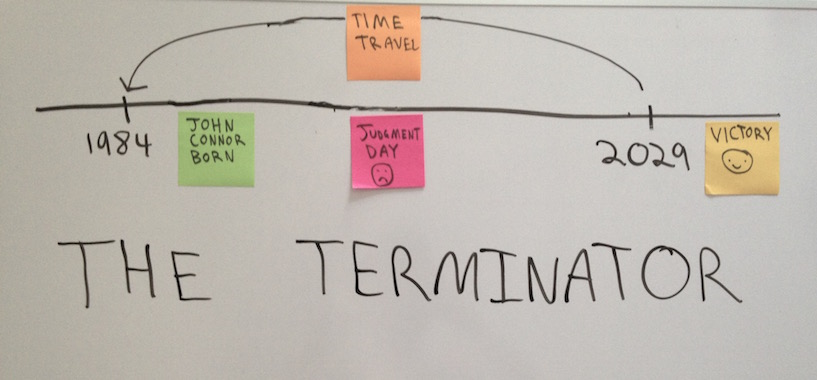 TIME
TRAVEL
1984
JOHN
CONNOR
BORN
JUDGMENT
DAY
2029
VICTORY
THE TERMINATOR